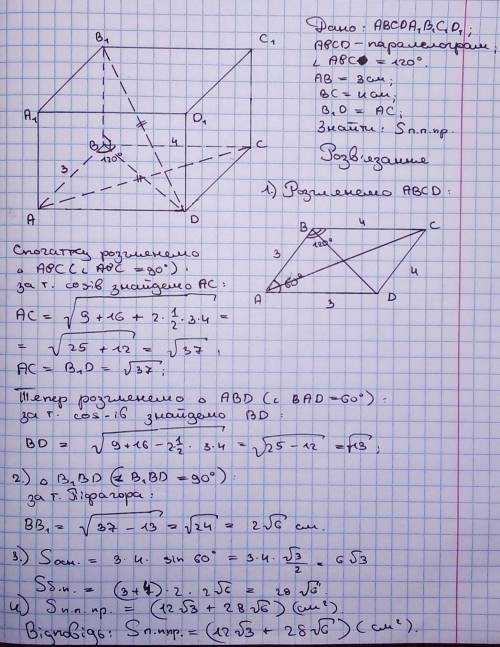 Дано: ABCDA₁B₁C₁D₁;
ABCD – паралелограм;
∠ABC = 120°.
AB = 3см;
BC = 4см;
B₁D = AC;
Знайти: Sп.п.пр.
Розв'язання
B₁
C₁
A₁
D₁
B
4
C
3
120°
A
D
1.) Розгленемо ABCD:
B
4
C
120°
3
4
A
60°
D
3
Спочатку розгленемо
△ ABC (∠ ABC = 90°):
за т. cosів знайдемо AC:
AC = √(9 + 16 + 2 · 1/2 · 3 · 4) =
= √(25 + 12) = √37;
AC = B₁D = √37;
Тепер розгленемо △ ABD (∠ BAD = 60°):
за т. cos-ів знайдемо BD:
BD = √(9 + 16 - 2 1/2 · 3 · 4) = √(25 - 12) = √13;
2.) △ B₁BD (∠ B₁BD = 90°):
за т. Піфагора:
BB₁ = √(37 - 13) = √24 = 2√6 см.
3.) Sосн. = 3 · 4 · sin 60° = 3 · 4 · √3/2 = 6√3
Sб.п. = (3+4) · 2 · 2√6 = 28√6.
4.) Sп.п.пр. = (12√3 + 28√6) (см²)
Відповідь: Sп.п.пр. = (12√3 + 28√6) (см²).